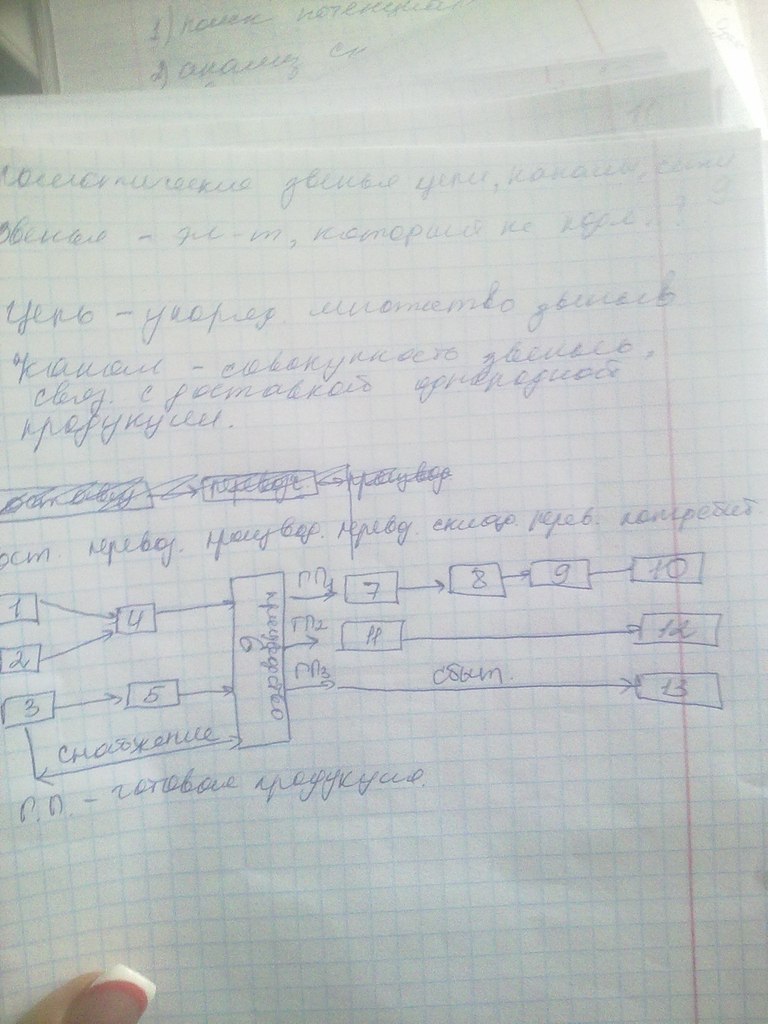 1) поиск потенциал
2) анализ сн
логистические звенья цепи, каналы, сети
Звенья - эл-т, который не подл. ?
Цепь - упоряд. множество звеньев
Канал - совокупность звеньев,
связ. с доставкой однородной
продукции.
ост. перевоз. производ. перевоз. склад. перев. потребит
1 4 ГП1 7 8 9 10
2 производство 6 ГП2 11 12
3 5 ГП3 сбыт. 13
снабжение
Г.П. - готовая продукция.